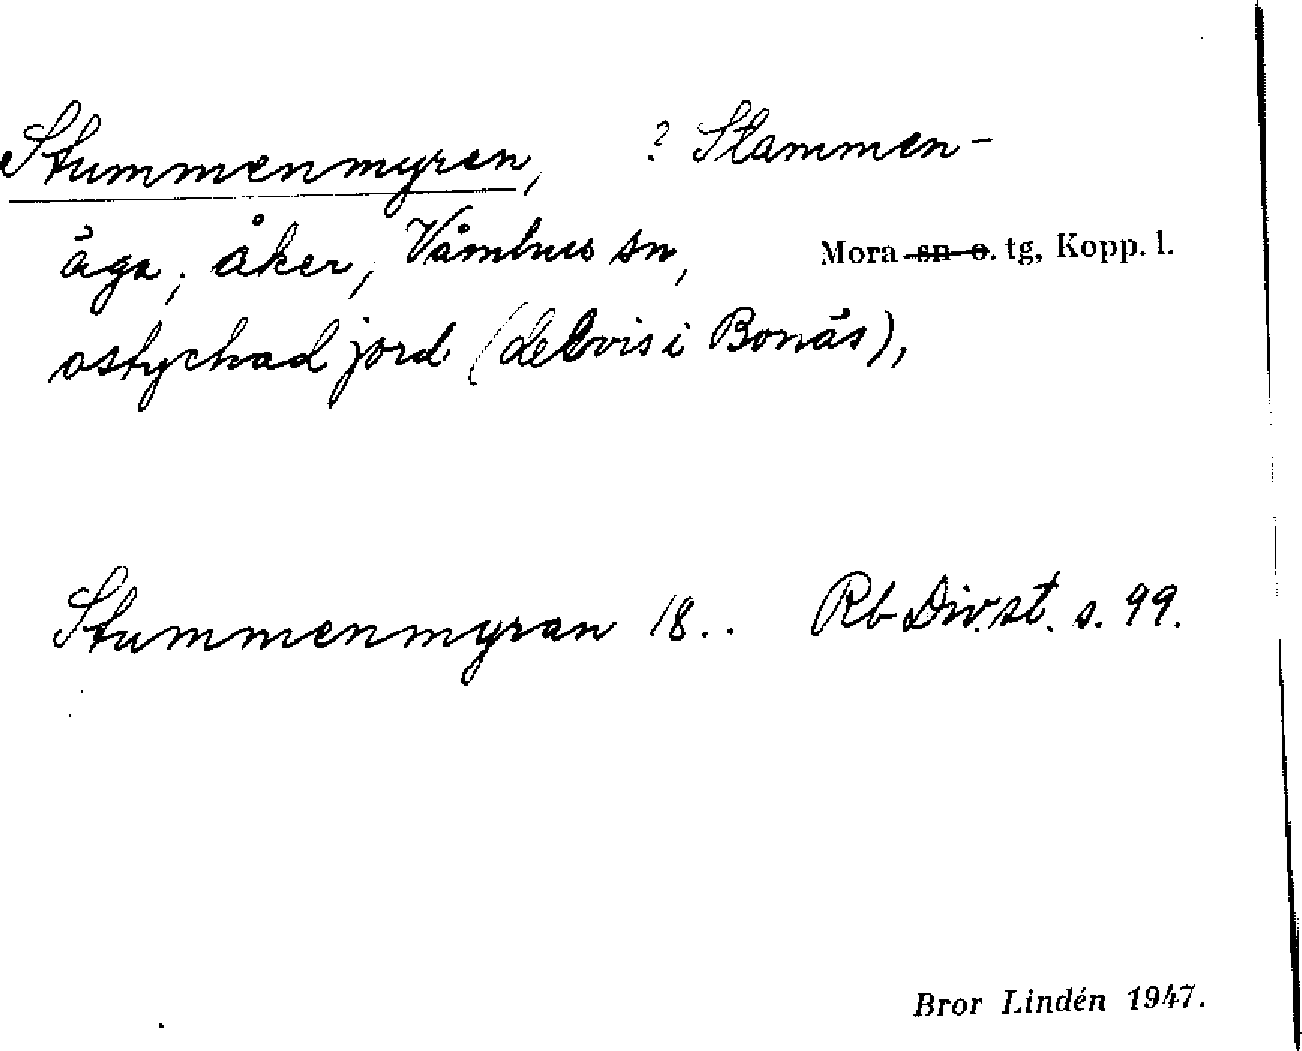 Stummenmyren, ? Stammen-
äga, åker, Våmhus sn, Mora sn o. tg, Kopp. l.
ostyckad jord (delvis i Bonäs),
Stummenmyran 18.. Rb Div. st. s. 99.
Bror Lindén 1947.